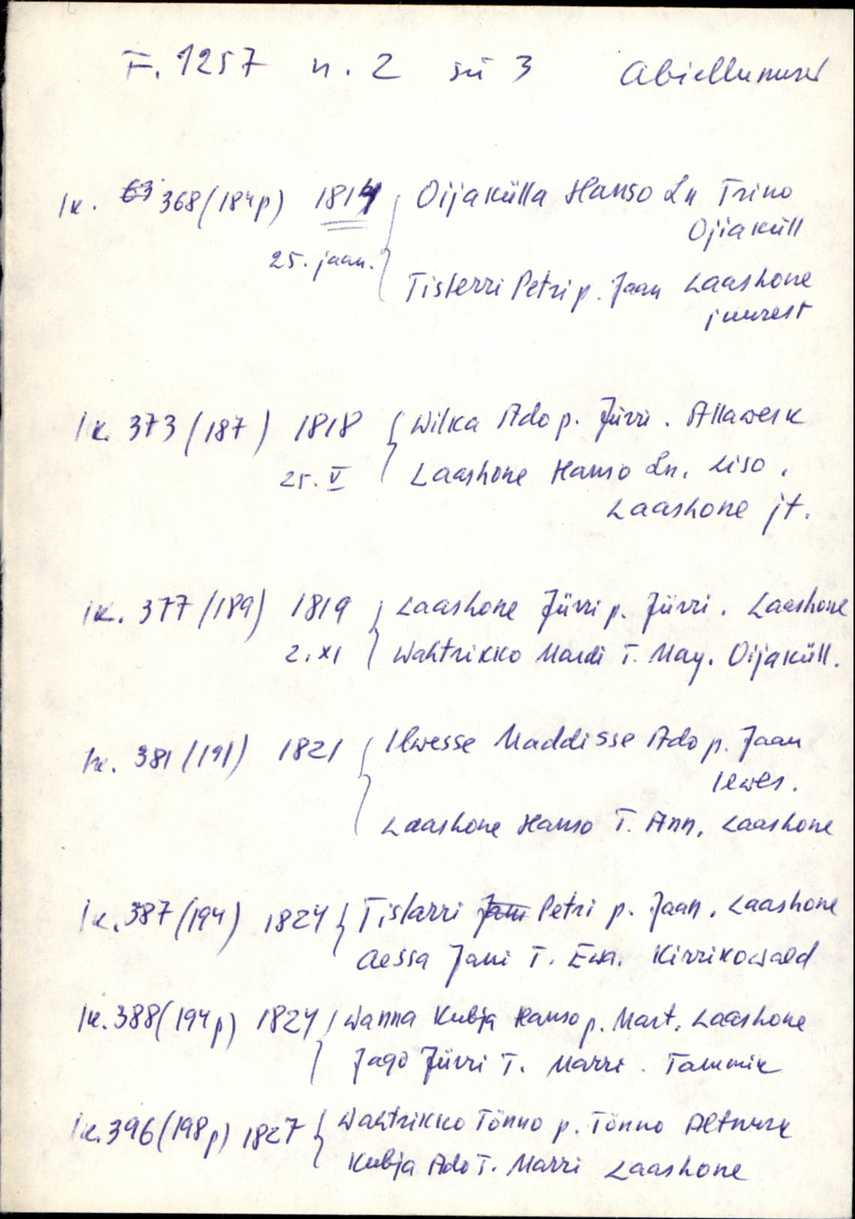 F. 1257 n. 2 sü 3 Abiellunud
lk. 63 368 (184p) 1814 Oijakülla Hanso Ln Trino
Ojiaküll
25. jaan.
Tislerri Petri p. Jaan Laashone
juurest
lk. 373 (187) 1818 Wilka Ado p. Jürri. Allawerk
25. V Laashone Hanso Ln. Liso,
Laashone jt.
lk. 377 (189) 1819 Laashone Jürri p. Jürri. Laashone
2. XI Wahtrikko Mardi T. May. Oijaküll.
lk. 381 (191) 1821 Ilwesse Maddisse Ado p. Jaan
Ilwes.
Laashone Hanso T. Ann, Laashone
lk. 387 (194) 1824 Tislarri Jani Petri p. Jaan, Laashone
Aessa Jani T. Ewa. Kirrikowald
lk. 388 (194p) 1824 Wanna Kubja Hanso p. Mart, Laashone
Jago Jürri T. Marri. Tammik
lk. 396 (198p) 1827 Wahtrikko Tönno p. Tönno
Kubja Ado T. Marri Laashone